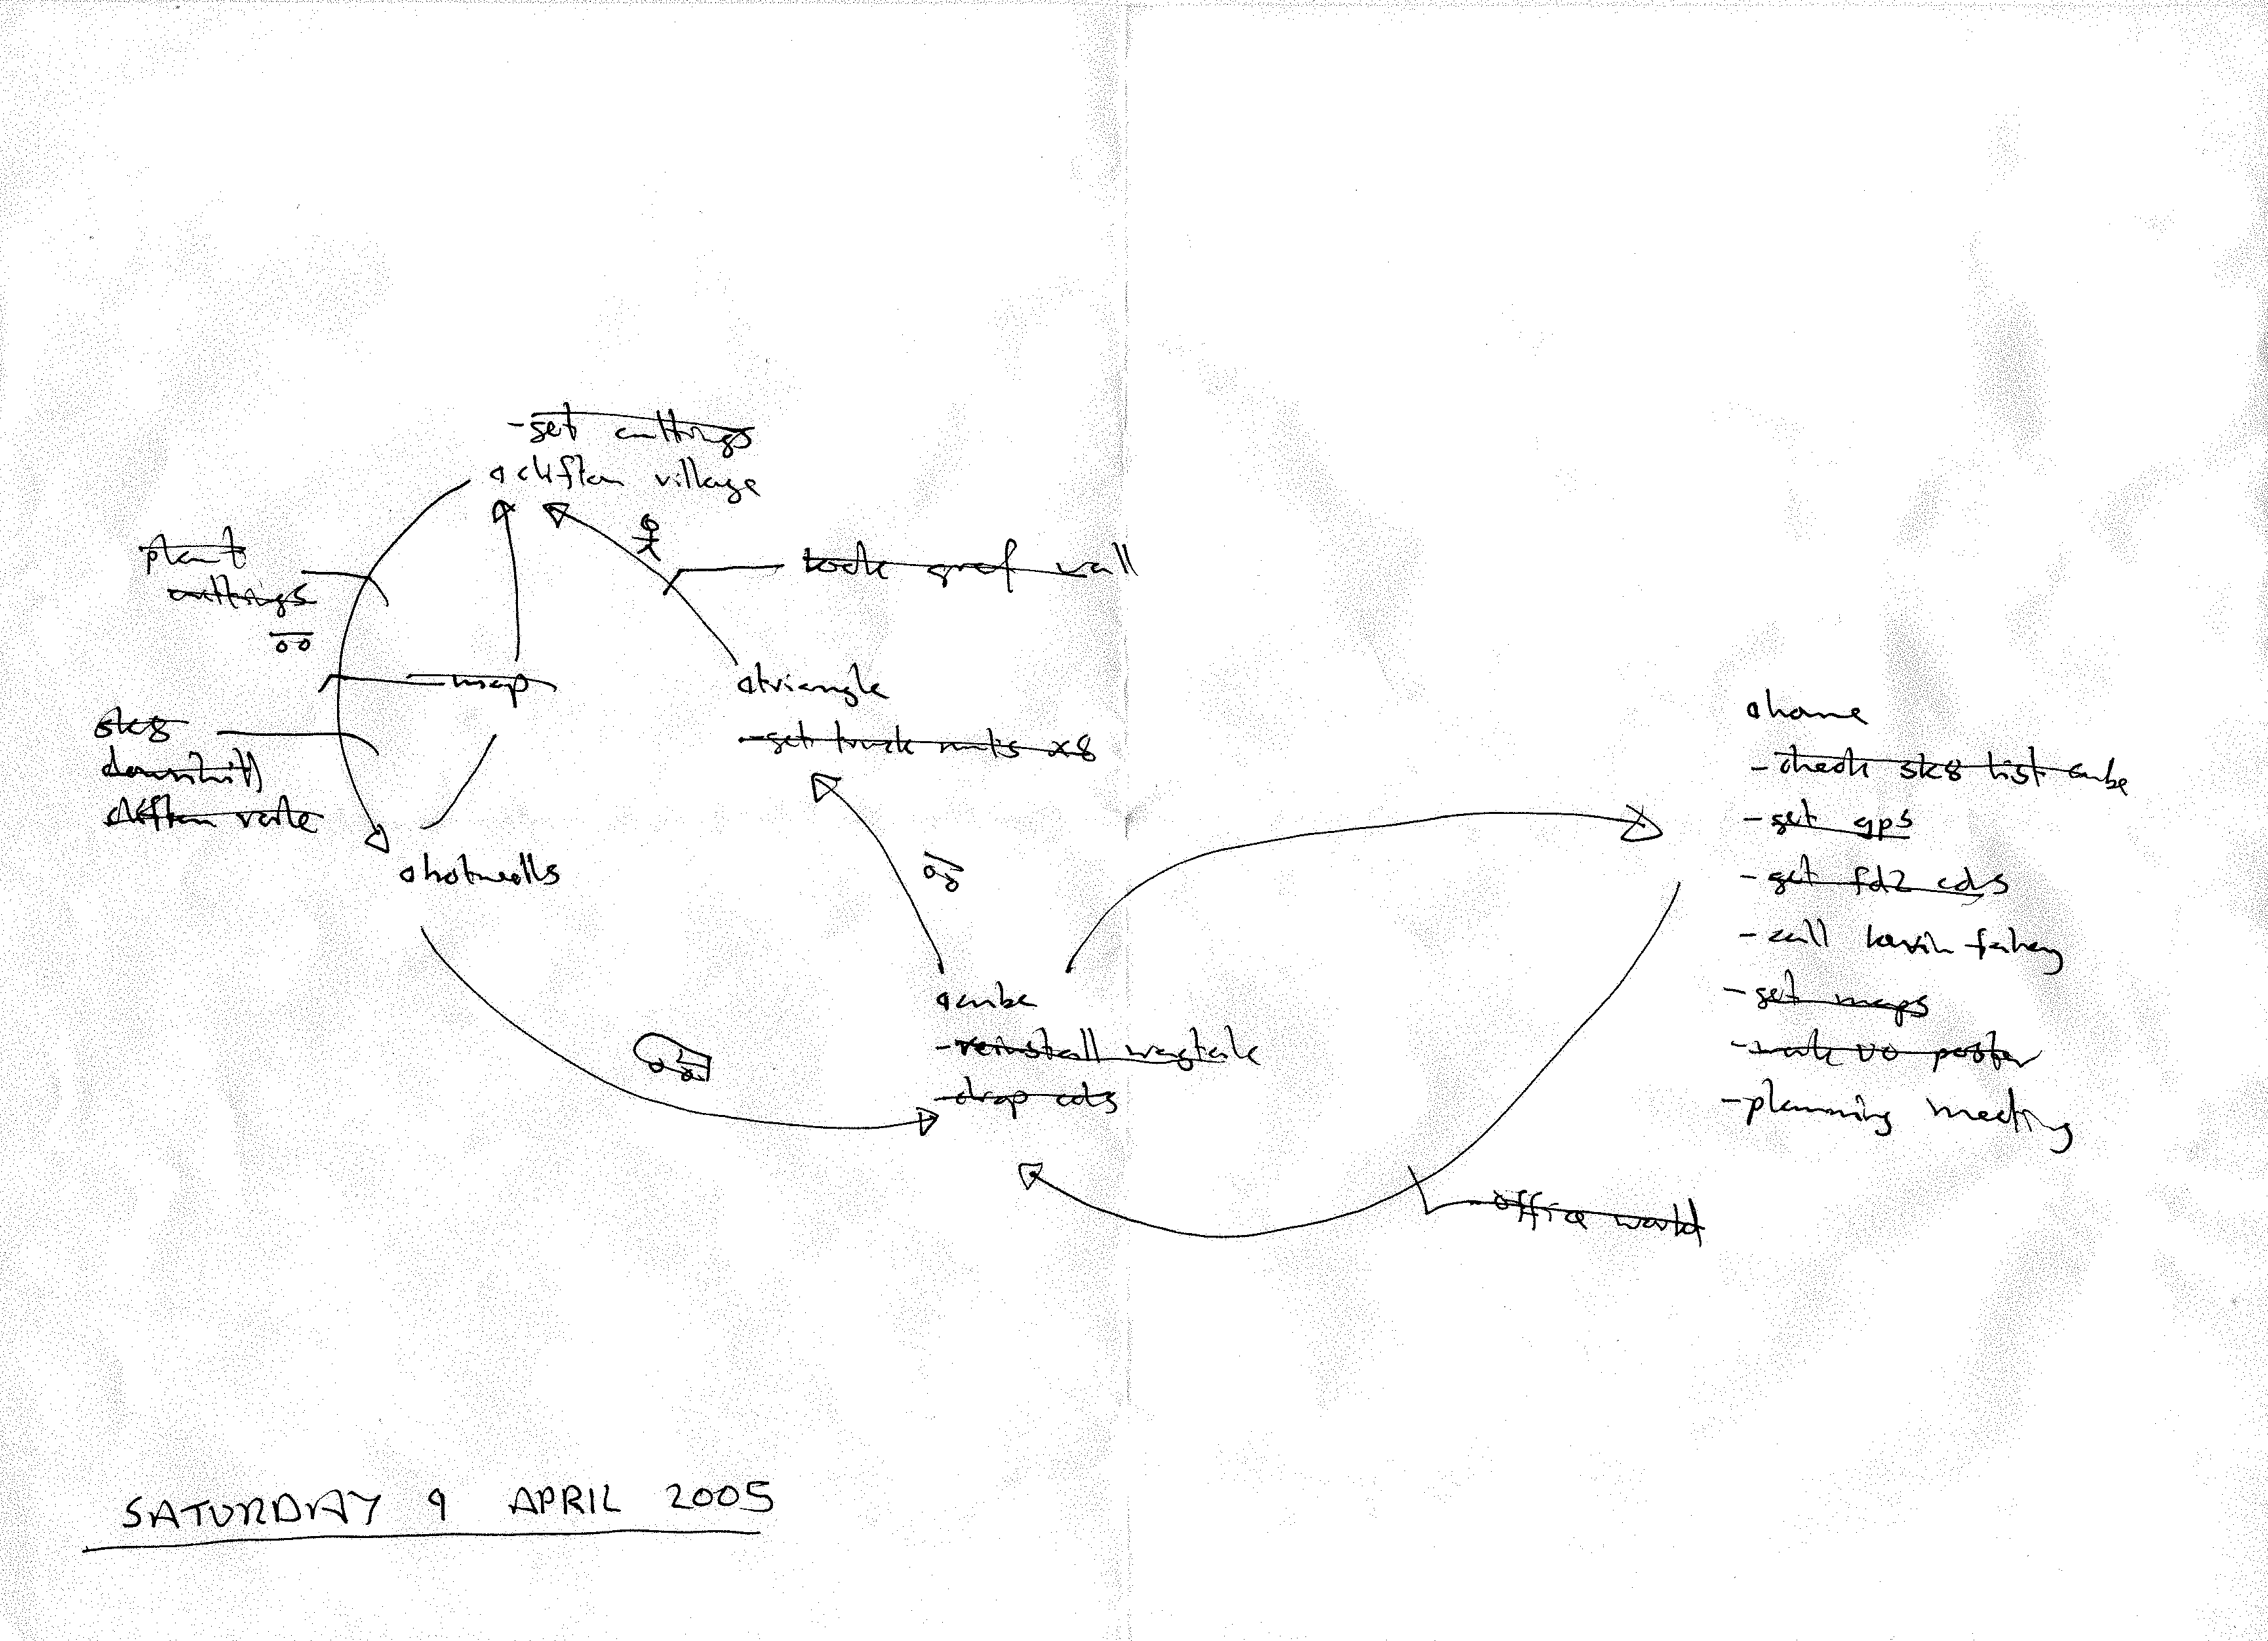 -get cuttings
clifton village
plant
cuttings
look graf wall
map
triangle
-get truck nuts x8
sk8
downhill
clifton vale
hotwells
home
-check sk8 list cube
-get gps
-get fd2 cds
-call kevin fahey
-get maps
-make vo poster
-planning meeting
cube
-reinstall wagtale
-drop cds
office world
SATURDAY 9 APRIL 2005